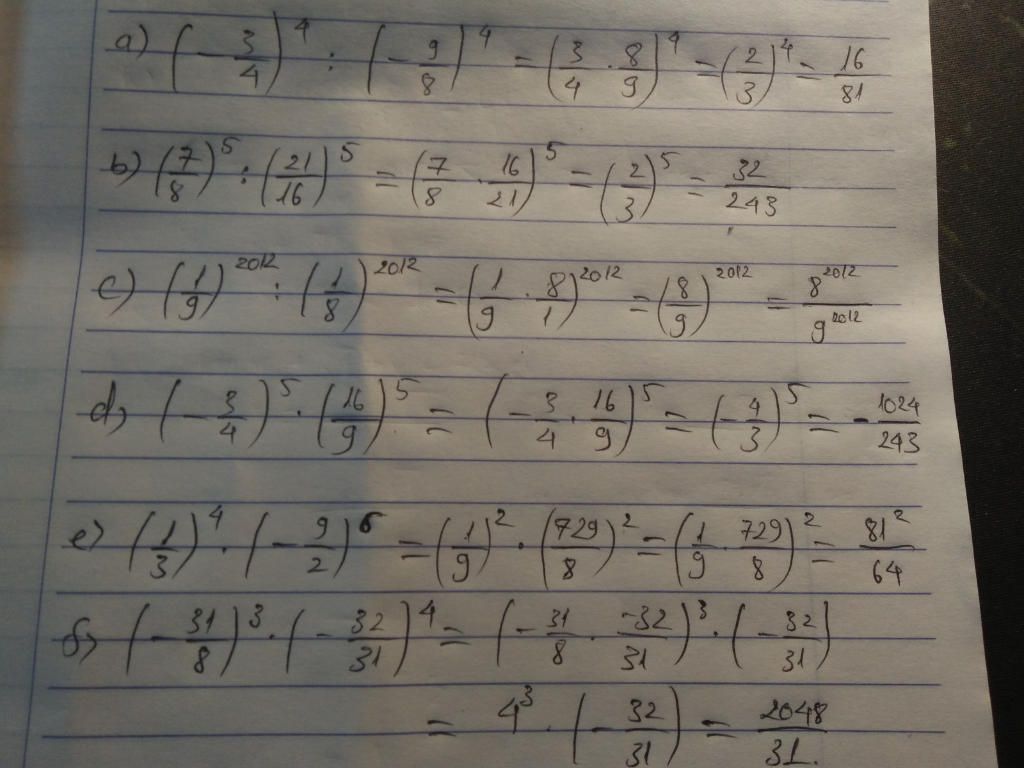 a) (-3/4)^4 : (-9/8)^4 = (3/4 · 8/9)^4 = (2/3)^4 = 16/81
b) (7/8)^5 : (21/16)^5 = (7/8 · 16/21)^5 = (2/3)^5 = 32/243
c) (1/9)^2012 : (1/8)^2012 = (1/9 · 8/1)^2012 = (8/9)^2012 = 8^2012/9^2012
d) (-3/4)^5 · (16/9)^5 = (-3/4 · 16/9)^5 = (-4/3)^5 = -1024/243
e) (1/3)^4 · (-9/2)^6 = (1/9)^2 · (729/8)^2 = (1/9 · 729/8)^2 = 81^2/64
б) (-31/8)^3 · (-32/31)^4 = (-31/8 · -32/31)^3 · (-32/31)
= 4^3 · (-32/31) = 2048/31.